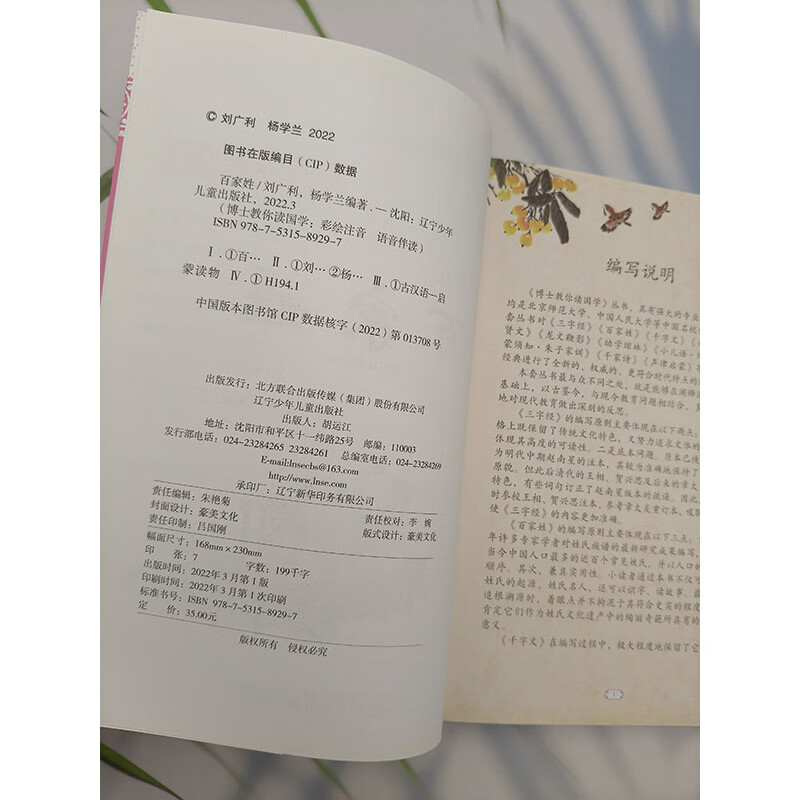 © 刘广利 杨学兰 2022
图书在版编目（CIP）数据
百家姓/刘广利，杨学兰编著．—沈阳：辽宁少年
儿童出版社，2022.3
（博士教你读国学：彩绘注音 语音伴读）
ISBN 978-7-5315-8929-7
Ⅰ．①百… Ⅱ．①刘…②杨… Ⅲ．①古汉语—启
蒙读物 Ⅳ．① H194.1
中国版本图书馆 CIP 数据核字（2022）第 013708 号
出版发行：北方联合出版传媒（集团）股份有限公司
辽宁少年儿童出版社
出版人：胡运江
地址：沈阳市和平区十一纬路25号 邮编：110003
发行部电话：024-23284265 23284261 总编室电话：024-23284269
E-mail:lnsecbs@163.com
http://www.lnse.com
承印厂：辽宁新华印务有限公司
责任编辑：朱艳菊 责任校对：李 婉
封面设计：豪美文化 版式设计：豪美文化
责任印制：吕国刚
幅面尺寸：168mm×230mm
印 张：7 字数：199千字
出版时间：2022年3月第1版
印刷时间：2022年3月第1次印刷
标准书号：ISBN 978-7-5315-8929-7
定 价：35.00元
版权所有 侵权必究
编写说明
《博士教你读国学》丛书，具有强大的专业
均是北京师范大学、中国人民大学等中国名校
套丛书对《三字经》《百家姓》《千字文》
贤文》《龙文鞭影》《幼学琼林》《小儿语·
蒙须知·朱子家训》《千家诗》《声律启蒙》
经典进行了全新的、权威的、更符合时代特点的
本套丛书最与众不同之处，就是能够在渊
基础上，以古鉴今，与现今教育问题相结合，
地对现代教育做出深刻的反思。
《三字经》的编写原则主要体现在以下两点，
格上既保留了传统文化特色，又努力追求文体的
体现其高度的可读性。二是底本问题，原本已
为明代中期赵南星的注本，其较为准确地保持了
原貌。但此后清代的王相、贺兴思及后来的章太
特色，有些词句订正了赵南星版本的疏误。因此
时参校王相、贺兴思注本，参考章太炎重订本，吸
使《三字经》的内容更加准确。
《百家姓》的编写原则主要体现在以下三点：
年许多专家学者对姓氏族谱的最新研究成果编写，
当今中国人口最多的近百个常见姓氏，并以人口
顺序。其次，兼具实用性。小读者通过本书不仅可
姓氏的起源、姓氏名人，还可以识字、读故事。
追根溯源时，着眼点并不拘泥于其符合史实的程度
肯定它们作为姓氏文化遗产中的绚丽奇葩所具有的
意义。
《千字文》在编写过程中，极大程度地保留了它
1